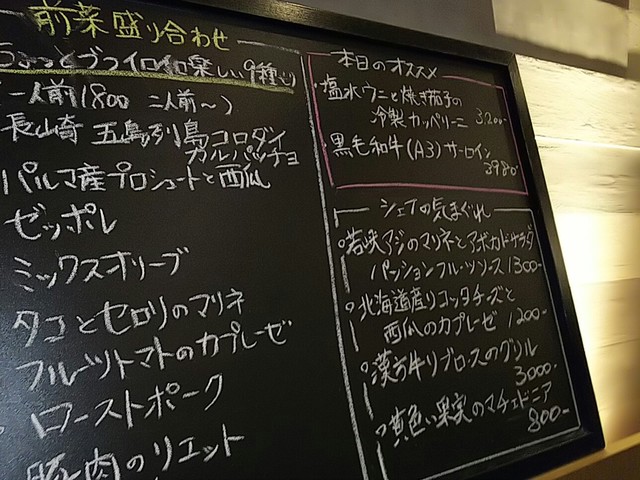 前菜盛り合わせ
ちょっとづついろいろ楽しい9種
一人前1800 二人前〜)
長崎 五島列島コロダイ
カルパッチョ
パルマ産プロシュートと西瓜
ゼッポレ
ミックスオリーブ
タコとセロリのマリネ
フルーツトマトのカプレーゼ
ローストポーク
豚肉のリエット
本日のオススメ
・塩水ウニと焼き茄子の
冷製カッペリーニ 3200-
・黒毛和牛(A3)サーロイン
3980-
シェフの気まぐれ
若狭アジのマリネとアボカドサラダ
パッションフルーツソース 1300-
北海道産リコッタチーズと
西瓜のカプレーゼ 1200-
漢方牛リブロースのグリル
3000-
黄色い果実のマチェドニア
800-